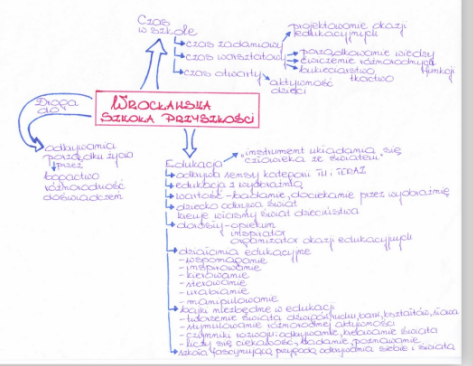 Czas
w szkole
projektowanie okazji
edukacyjnych
czas zadaniowy
czas warsztatowy
porządkowanie wiedzy
ćwiczenie różnorodnych
funkcji
bukieciarstwo
tkactwo
czas otwarty
aktywność
dzieci
WROCŁAWSKA
SZKOŁA PRZYSZŁOŚCI
Droga
do
odkrywania
porządku życia
przez
bogactwo
różnorodność
doświadczeń
Edukacja
"instrument układania się
człowieka ze światem"
odkrywa sensy kategorii TU i TERAZ
edukacja z wyobraźnią
wartość - badanie, dociekanie przez wyobraźnię
dziecko odkrywa świat
kreuje własny świat dzieciństwa
dorosły - opiekun
inspirator
organizator okazji edukacyjnych
działania edukacyjne
- wspomaganie
- inspirowanie
- kierowanie
- sterowanie
- urabianie
- manipulowanie
bajki niezbędne w edukacji
- tworzenie świata dźwięków, ruchu, barw, kształtów, słowa
- stymulowanie różnorodnej aktywności
- czynniki rozwoju: odkrywanie, kreowanie świata
- liczy się ciekawość, badanie, poznawanie
szkoła fascynującą przygodą odkrywania siebie i świata